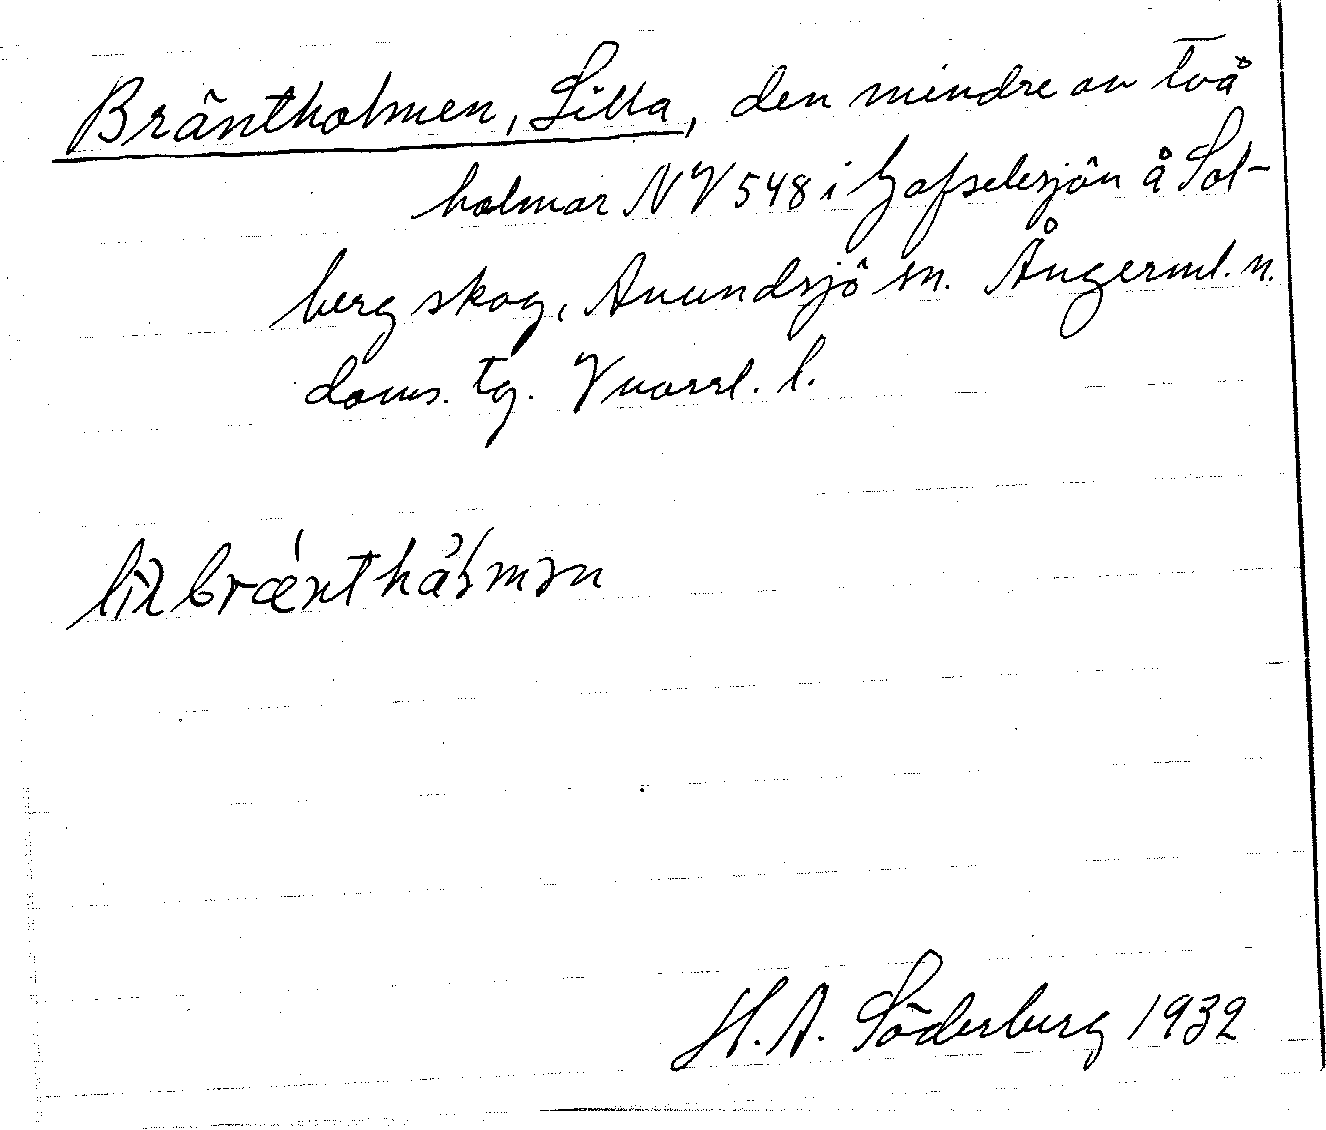 Bräntholmen, Lilla, den mindre av två
holmar NV 548 i Gafselesjön å Sol-
berg skog, Anundsjö sn. Ångerml. n.
doms. tg. Vnorrl. l.
H. A. Söderberg 1932